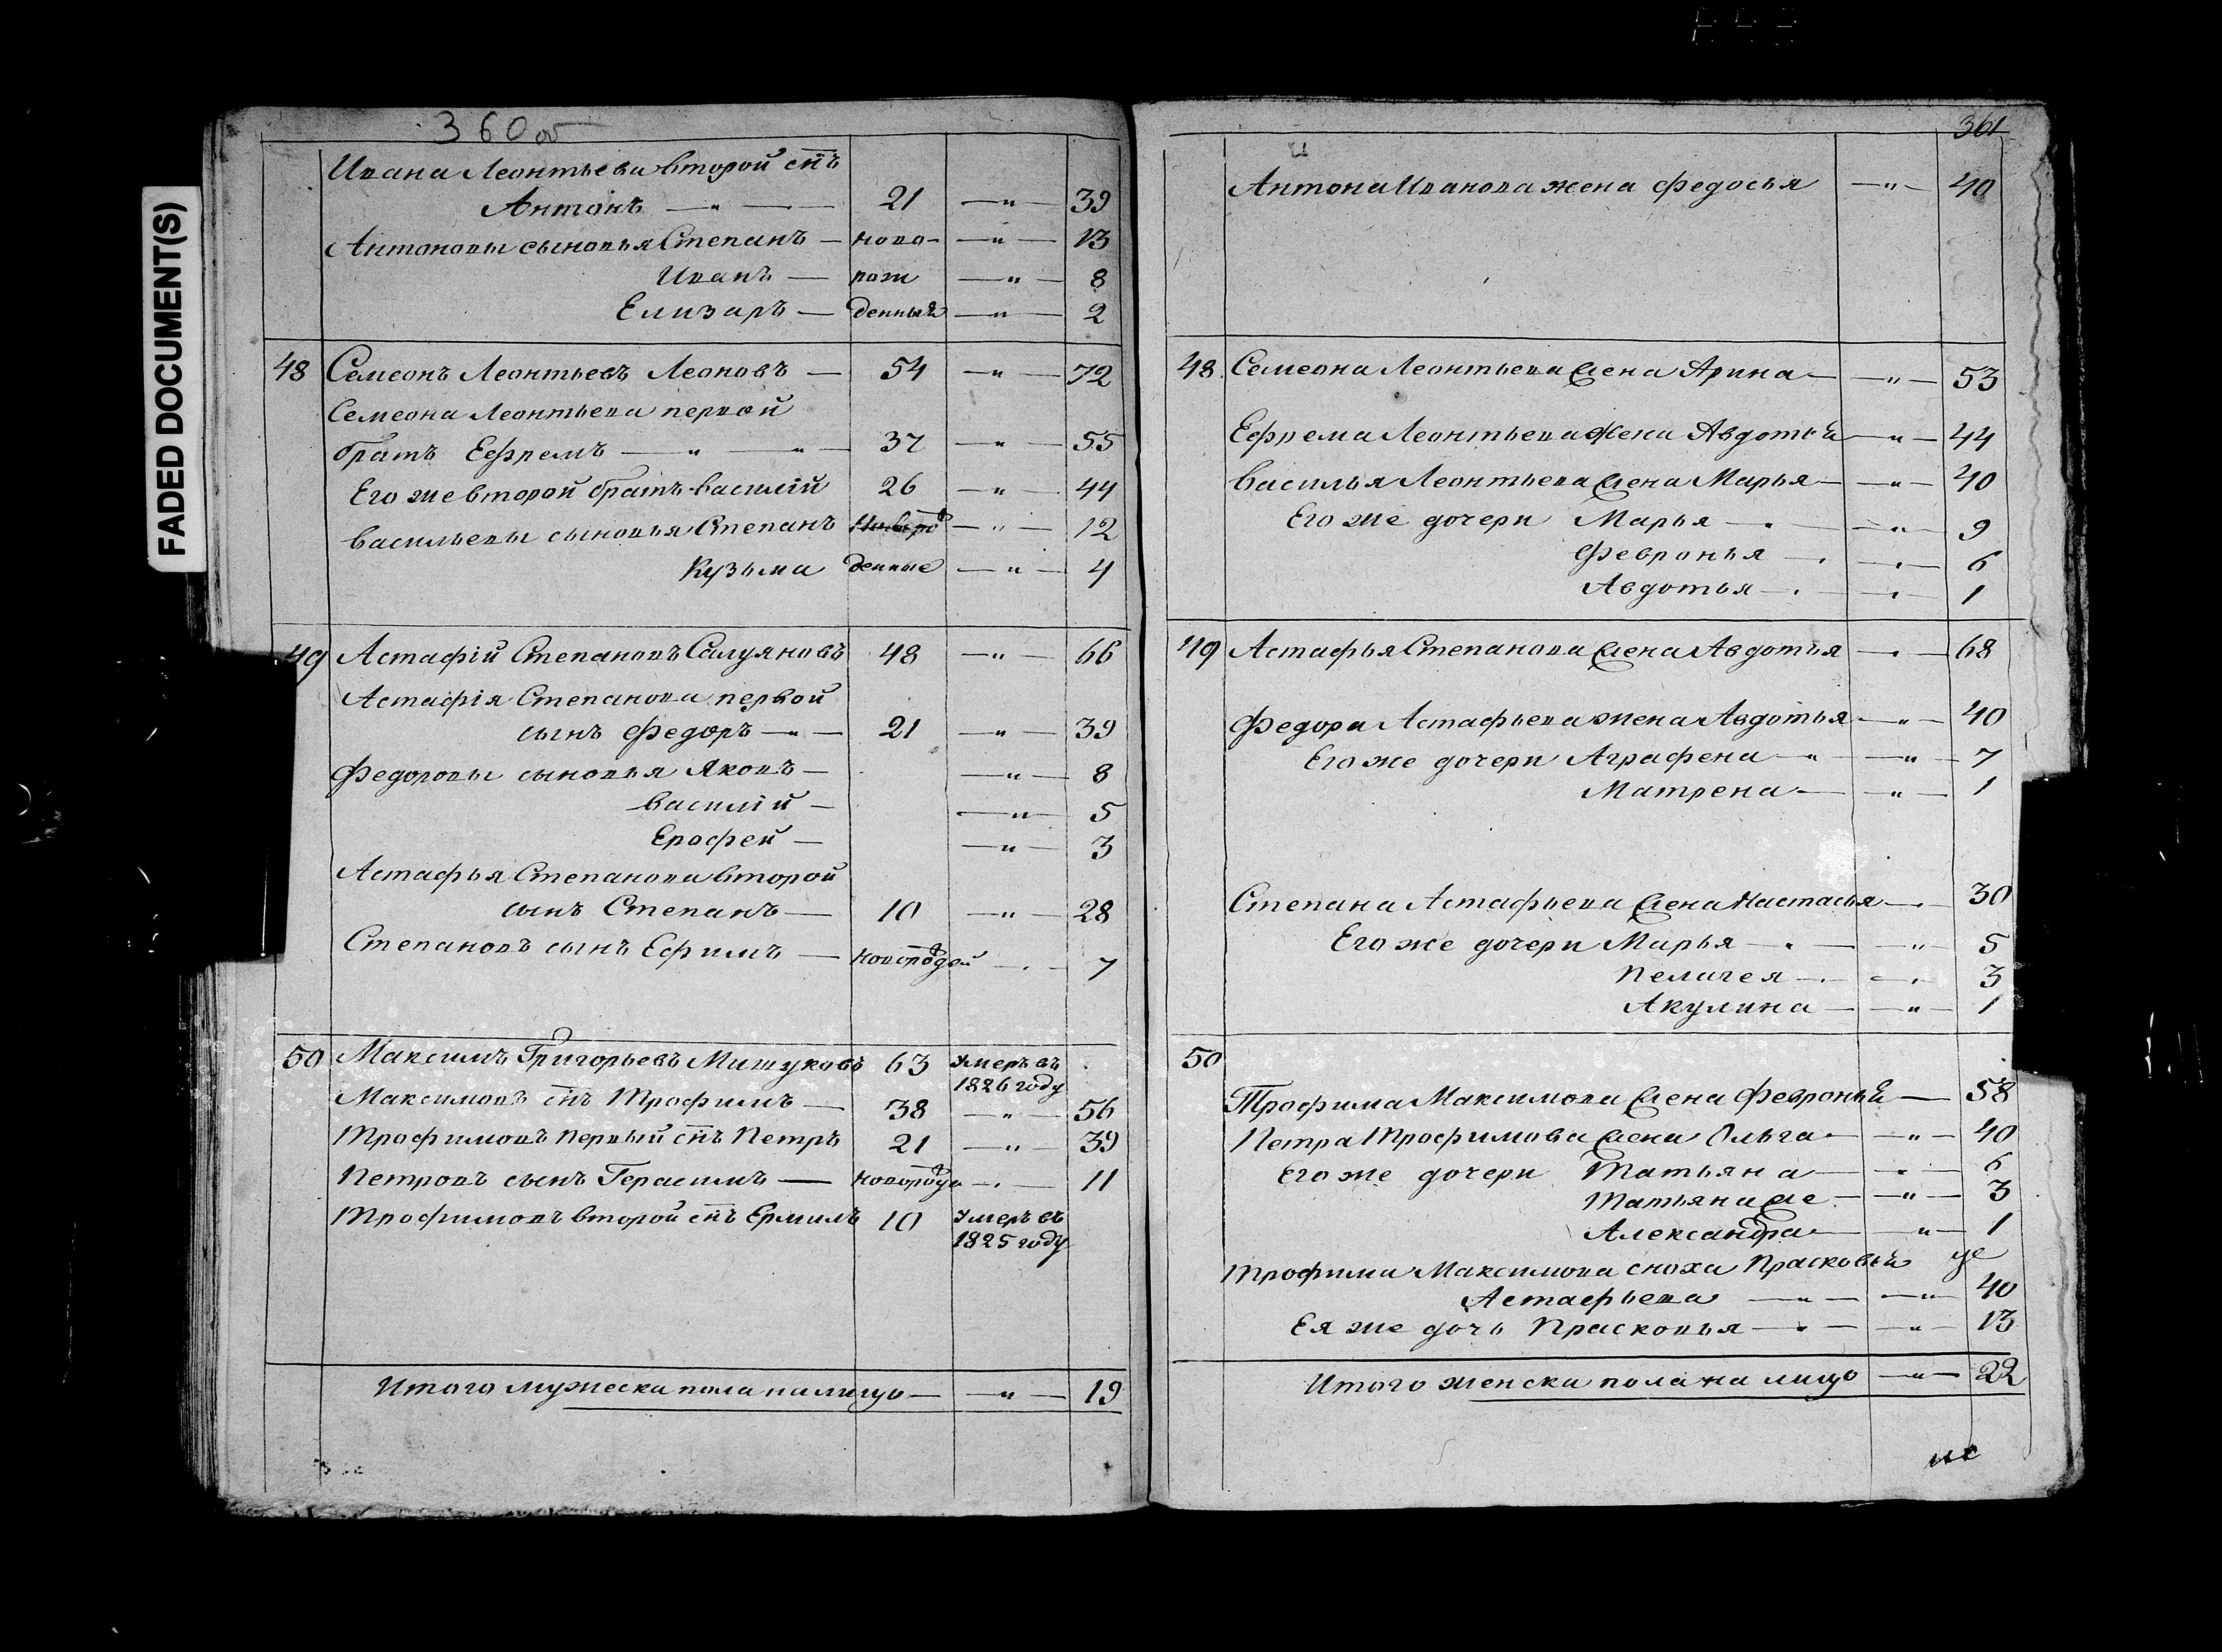 FADED DOCUMENT(S)
360 об
Ивана Леонтьева второй снъ
Антонъ — " — 21 — " — 39
Антоновы сыновья Степанъ — ново- — " — 13
Иванъ — рож — " — 8
Елизаръ — денныя — " — 2
48 Семеонъ Леонтьевъ Леоновъ — 54 — " — 72
Семеона Леонтьева первой
братъ Ефремъ — " — " — 37 — " — 55
Его же второй братъ Василій 26 — " — 44
Васильевы сыновья Степанъ — " — 12
Кузьма денные — " — 4
49 Астафій Степановъ Салуяновъ 48 — " — 66
Астафія Степанова первой
сынъ Федоръ — " — 21 — " — 39
Федоровы сыновья Яковъ — — " — 8
Василій — — " — 5
Ерофей — — " — 3
Астафья Степанова второй
сынъ Степанъ — 10 — " — 28
Степановъ сынъ Ефимъ — новорождей — . — 7
50 Максимъ Григорьевъ Мишуковъ 63 Умеръ въ
1826 году
Максимовъ снъ Трофимъ — 38 — " — 56
Трофимовъ первый снъ Петръ 21 — " — 39
Петровъ сынъ Герасимъ — новорожде — . — 11
Трофимовъ второй снъ Ермилъ 10 Умеръ въ
1825 году
Итого мужеска пола налицо — — " — 19
361
Антона Иванова жена Федосья — " — 40
48 Семеона Леонтьева жена Арина — — " — 53
Ефрема Леонтьева жена Авдотья — " — 44
Василья Леонтьева жена Марья — — " — 40
Его же дочери Марья — . — — " — 9
Февронья — . — . — 6
Авдотья — . — . — 1
49 Астафья Степанова жена Авдотья — . — 68
Федора Астафьева жена Авдотья — " — 40
Его же дочери Аграфена — " — — " — 7
Матрена — — " — 1
Степана Астафьева жена Настасья — . — 30
Его же дочери Марья — . — — " — 5
Пелагея — . — . — 3
Акулина — — " — 1
50
Трофима Максимова жена Февронья — 58
Петра Трофимова жена Ольга — — " — 40
Его же дочери Татьяна — — . — 6
Татьяна же — — " — 3
Александра — — " — 1
Трофима Максимова сноха Прасковья
Астафьева — " — — " — 40
Ея же дочь Прасковья — . — — " — 13
Итого женска пола на лицо — " — 22